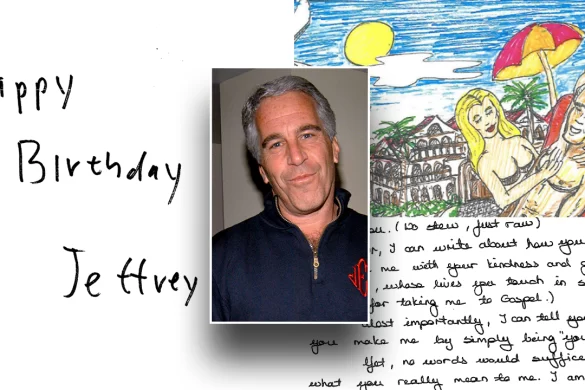 appy
Birthday
Jeffrey
ou. (No stew, just raw)
, I can write about how you
me with your kindness and
, whose lives you touch in s
for taking me to Gospel.)
ost importantly, I can tell you
you make me by simply being "you
Yet, no words would suffice
what you really mean to me. I am